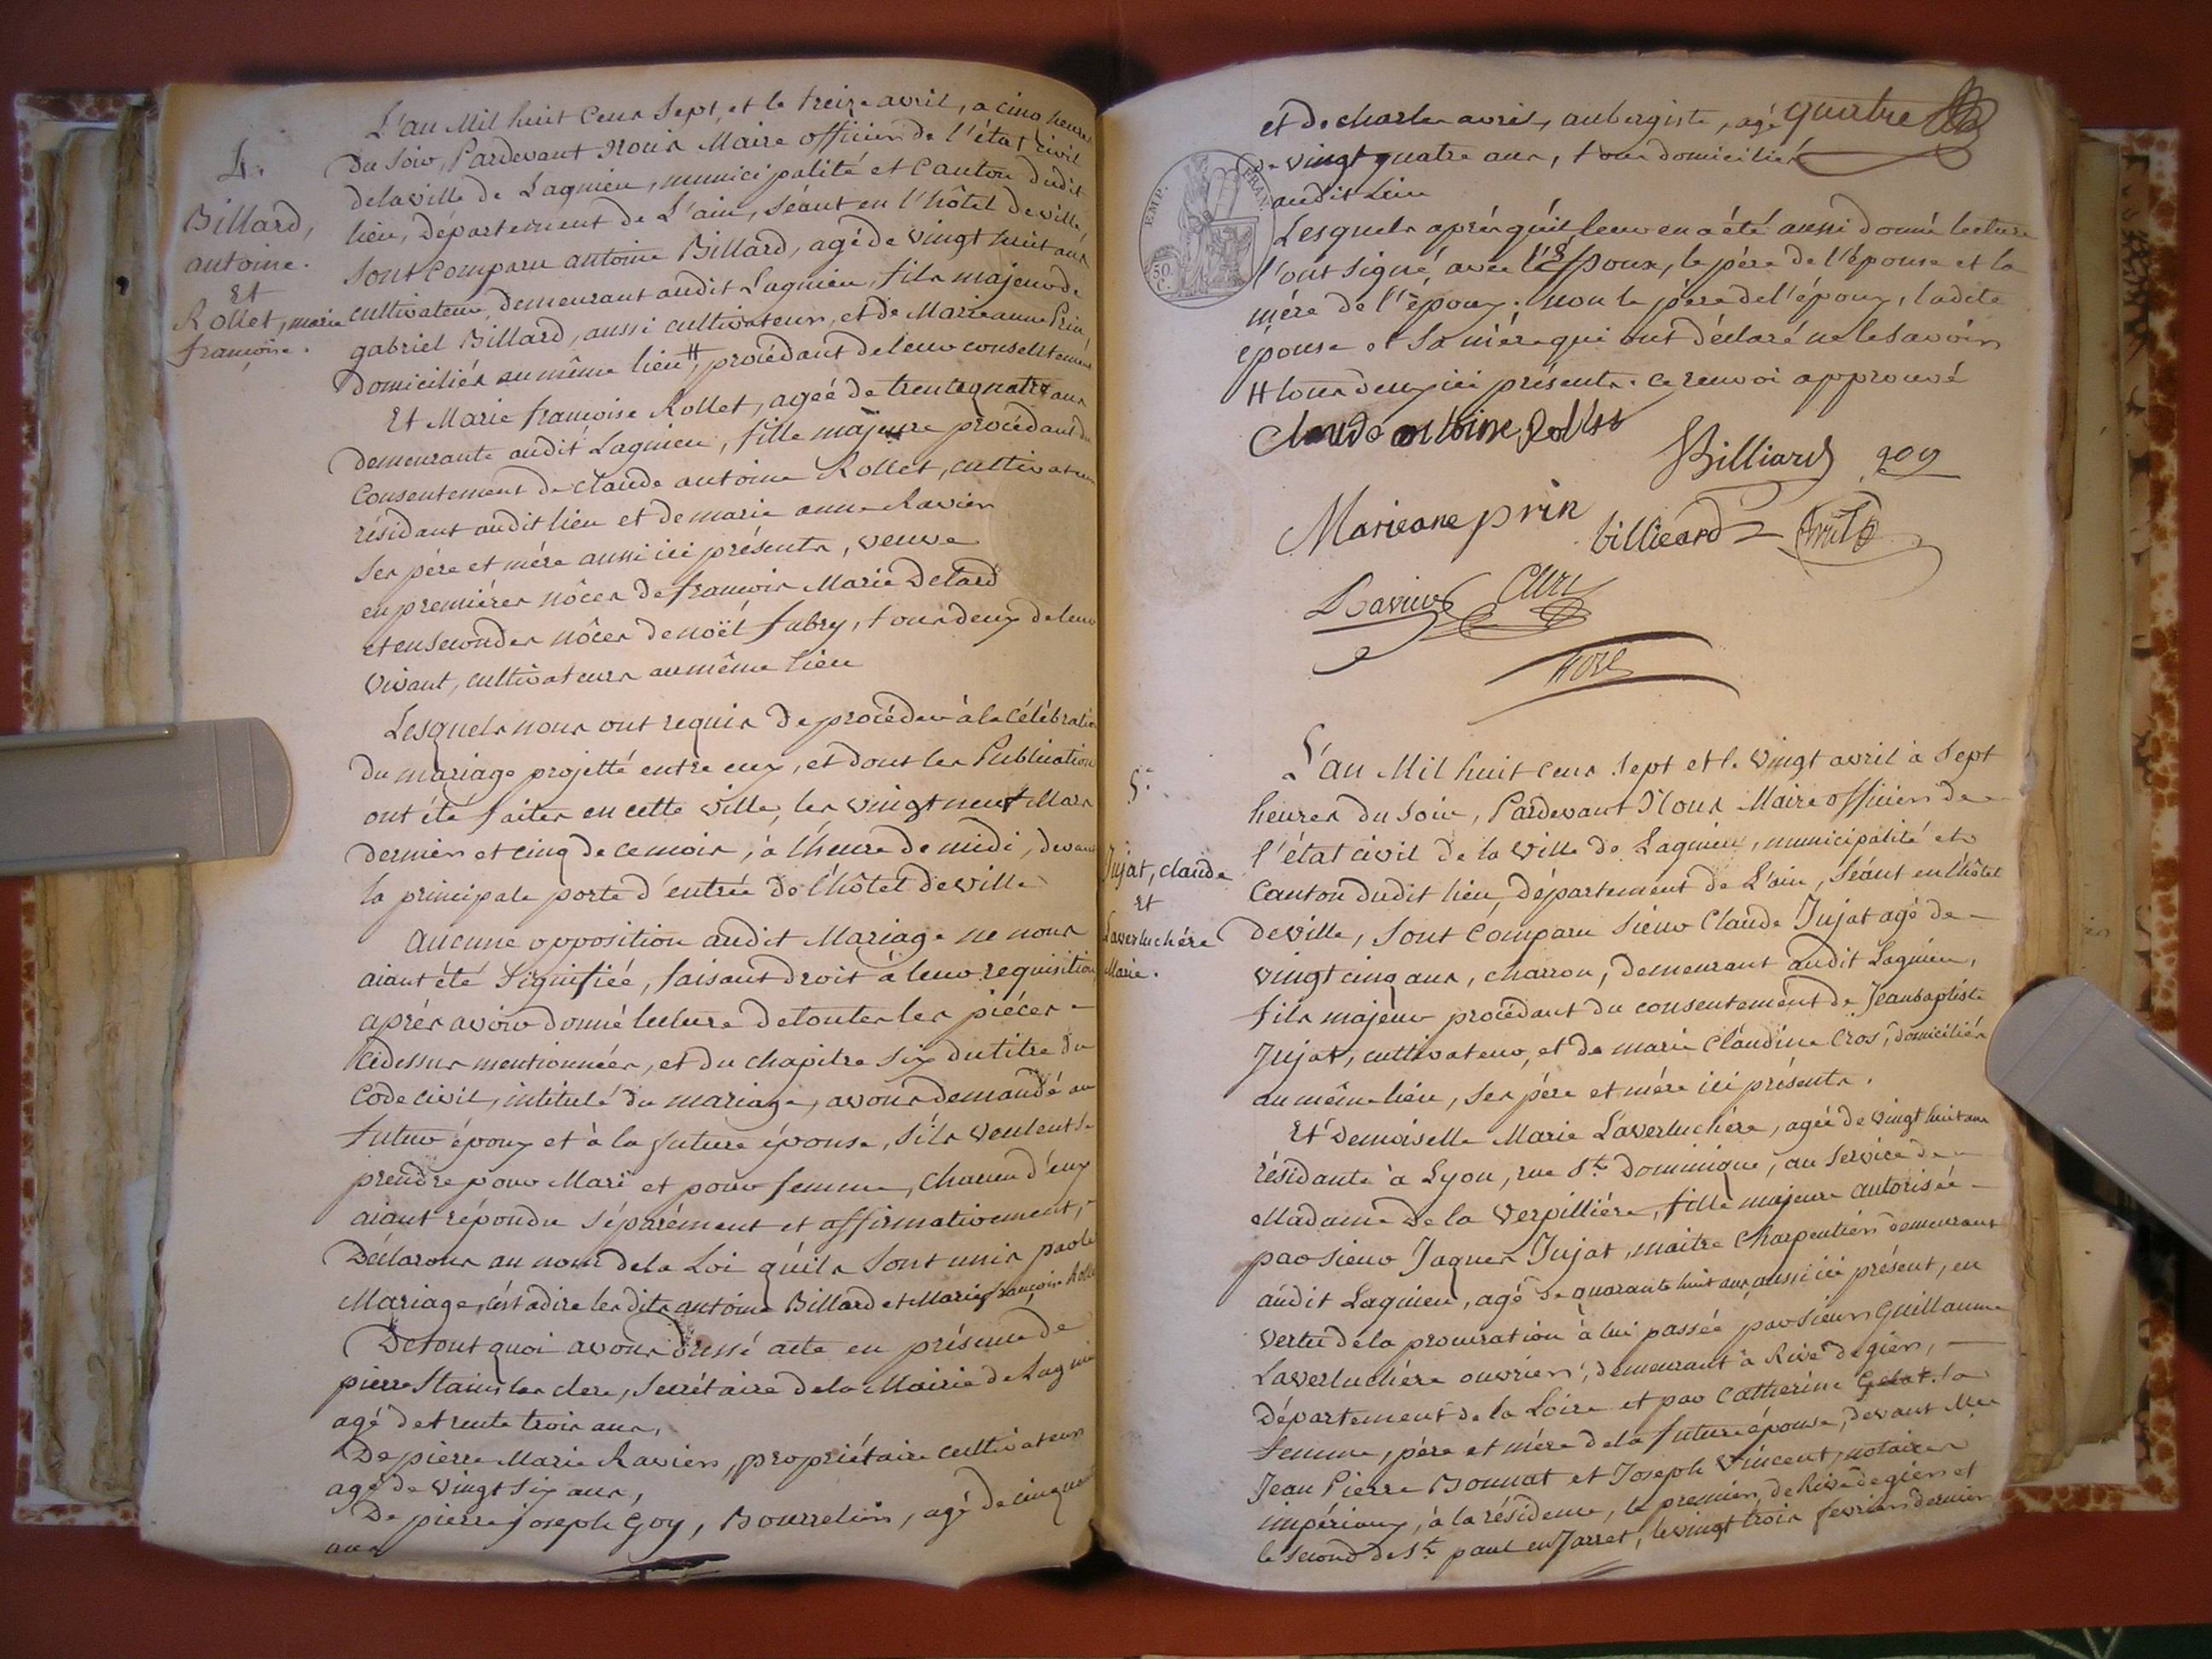 4.
Billard,
antoine.
Et
Rollet, marie
françoise.
L'an Mil huit Cens Sept, et le treize avril, a cinq heures
du Soir, Pardevant Nous Maire officier de l'état civil
de la ville de Lagnieu, municipalité et Canton dudit
lieu, Département de L'ain, Séant en l'hôtel de ville,
Sont Comparu antoine Billard, agé de vingt huit ans
cultivateur, demeurant audit Lagnieu, fils majeur de
gabriel Billard, aussi cultivateur, et de Marieanne Prin
domiciliés au même lieu #, procédant de leur consentement
Et Marie françoise Rollet, agée de trente quatre ans
demeurante audit Lagnieu, fille majeure procédant du
Consentement de Claude antoine Rollet, cultivateur
résidant audit lieu et de marie anne Ravier
Ses père et mére aussi ici présents, veuve
en premiéres nôces de françois Marie Delard
et en secondes nôces de noël fabry, tous deux de leur
vivant, cultivateurs au même lieu
Lesquels nous ont requis de procéder à la Célébration
du mariage projetté entre eux, et dont les Publications
ont été faites en cette ville, les vingt neuf Mars
dernier et cinq de ce mois, à l'heure de midi, devant
la principale porte d'entrée de l'hôtel de ville
Aucune opposition audit Mariage ne nous
aiant été Signifiée, faisant droit à leur requisition,
aprés avoir donné lecture de toutes les piéces
cidessus mentionnées, et du chapitre Six du titre du
Code civil, intitulé du mariage, avons demandé au
futur époux et à la future épouse, s'ils veulent se
prendre pour Mari et pour femme, Chacun d'eux
aiant répondu Séparément et affirmativement,
Déclarons au nom de la Loi qu'ils Sont unis par le
Mariage, c'est adire lesdits antoine Billard et Marie françoise Rollet
De tout quoi avons dressé acte en présence de
pierre Stanislas clerc, Secrétaire de la Mairie de Lagnieu
agé de trente trois ans,
De pierre Marie Ravier, propriétaire cultivateur
agé de vingt Six ans,
De pierre joseph Goy, Bourrelier, agé de cinquante
ans
et de charles avril, aubergiste, agé quatre
de vingt quatre ans, tous domiciliés
audit Lieu
TEMP.
FRAN.
50
C.
Lesquels aprés qu'il leur en a été aussi donné lecture
l'ont Signé, avec l'Epoux, le pére de l'épouse et la
mére de l'époux; non le pére de l'époux, ladite
épouse et Sa mére qui ont déclaré ne le Savoir
# tous deux ici présents. ce renvoi approuvé
Claude antoine Rollet
Billiard goy
Marieane prin
billieard Avril
Ravier Clerc
5.
Jujat, claude
Et
Laverluchére
Marie.
L'an Mil huit Cens Sept et le vingt avril à Sept
heures du Soir, Pardevant Nous Maire officier de
l'état civil de la ville de Lagnieu, municipalité et
Canton dudit lieu, Département de L'ain, Séant en l'hôtel
de ville, Sont Comparu Sieur Claude Jujat agé de
vingt cinq ans, charron, demeurant audit Lagnieu,
fils majeur procédant du consentement de Jean baptiste
Jujat, cultivateur, et de marie Claudine Cros, domiciliés
au même lieu, Ses pére et mére ici présents.
Et Demoiselle Marie Laverluchére, agée de vingt huit ans
résidante à Lyon, rue St. Dominique, au Service de
Madame De la Verpilliére, fille majeure autorisée
par Sieur Jaques Jujat, maitre Charpentier demeurant
audit Lagnieu, agé de quarante huit ans, aussi ici présent, en
vertu de la procuration à lui passée par Sieur Guillaume
Laverluchére ouvrier, demeurant à Rive de gier,
Département de la Loire et par Catherine Gelat Sa
femme, pére et mére de la future épouse, devant Mes
Jean Pierre Bonnat et Joseph Vincent, notaires
impériaux, à la résidence, le premier de Rive de gier et
le Second de St. paul en Jarret, le vingt trois fevrier dernier